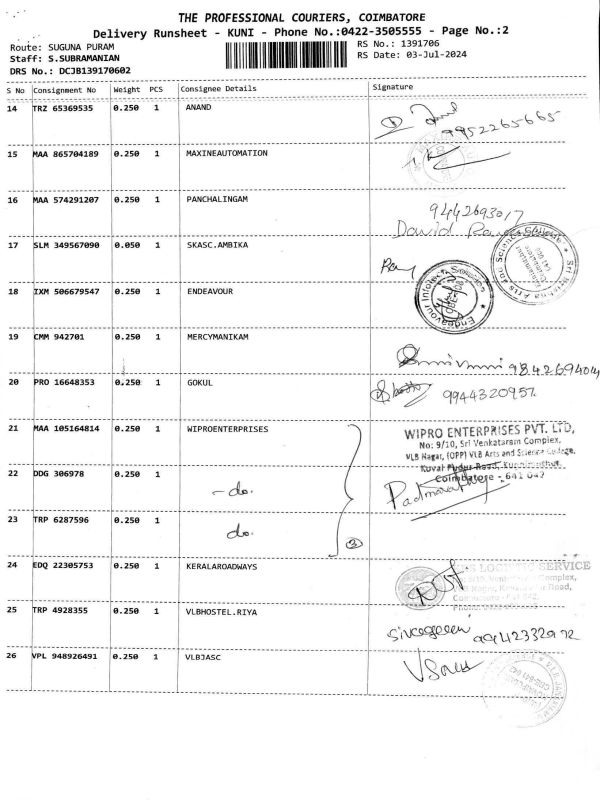 THE PROFESSIONAL COURIERS, COIMBATORE
Delivery Runsheet - KUNI - Phone No.:0422-3505555 - Page No.:2
Route: SUGUNA PURAM
Staff: S.SUBRAMANIAN
DRS No.: DCJB139170602
RS No.: 1391706
RS Date: 03-Jul-2024
S No Consignment No Weight PCS Consignee Details Signature
14 TRZ 65369535 0.250 1 ANAND
9952265665
15 MAA 865704189 0.250 1 MAXINEAUTOMATION
16 MAA 574291207 0.250 1 PANCHALINGAM
9442693017
David
17 SLM 349567090 0.050 1 SKASC.AMBIKA
18 IXM 506679547 0.250 1 ENDEAVOUR
19 CMM 942701 0.250 1 MERCYMANIKAM
20 PRO 16648353 0.250 1 GOKUL
21 MAA 105164814 0.250 1 WIPROENTERPRISES
WIPRO ENTERPRISES PVT. LTD,
No: 9/10, Sri Venkataram Complex,
VLB Nagar, (OPP) VLB Arts and Science College,
Coimbatore - 641 042
22 DDG 306978 0.250 1 - do.
23 TRP 6287596 0.250 1 do.
3
24 EDQ 22305753 0.250 1 KERALAROADWAYS
LOGISTIC SERVICE
25 TRP 4928355 0.250 1 VLBHOSTEL.RIYA
9942332972
26 VPL 948926491 0.250 1 VLBJASC